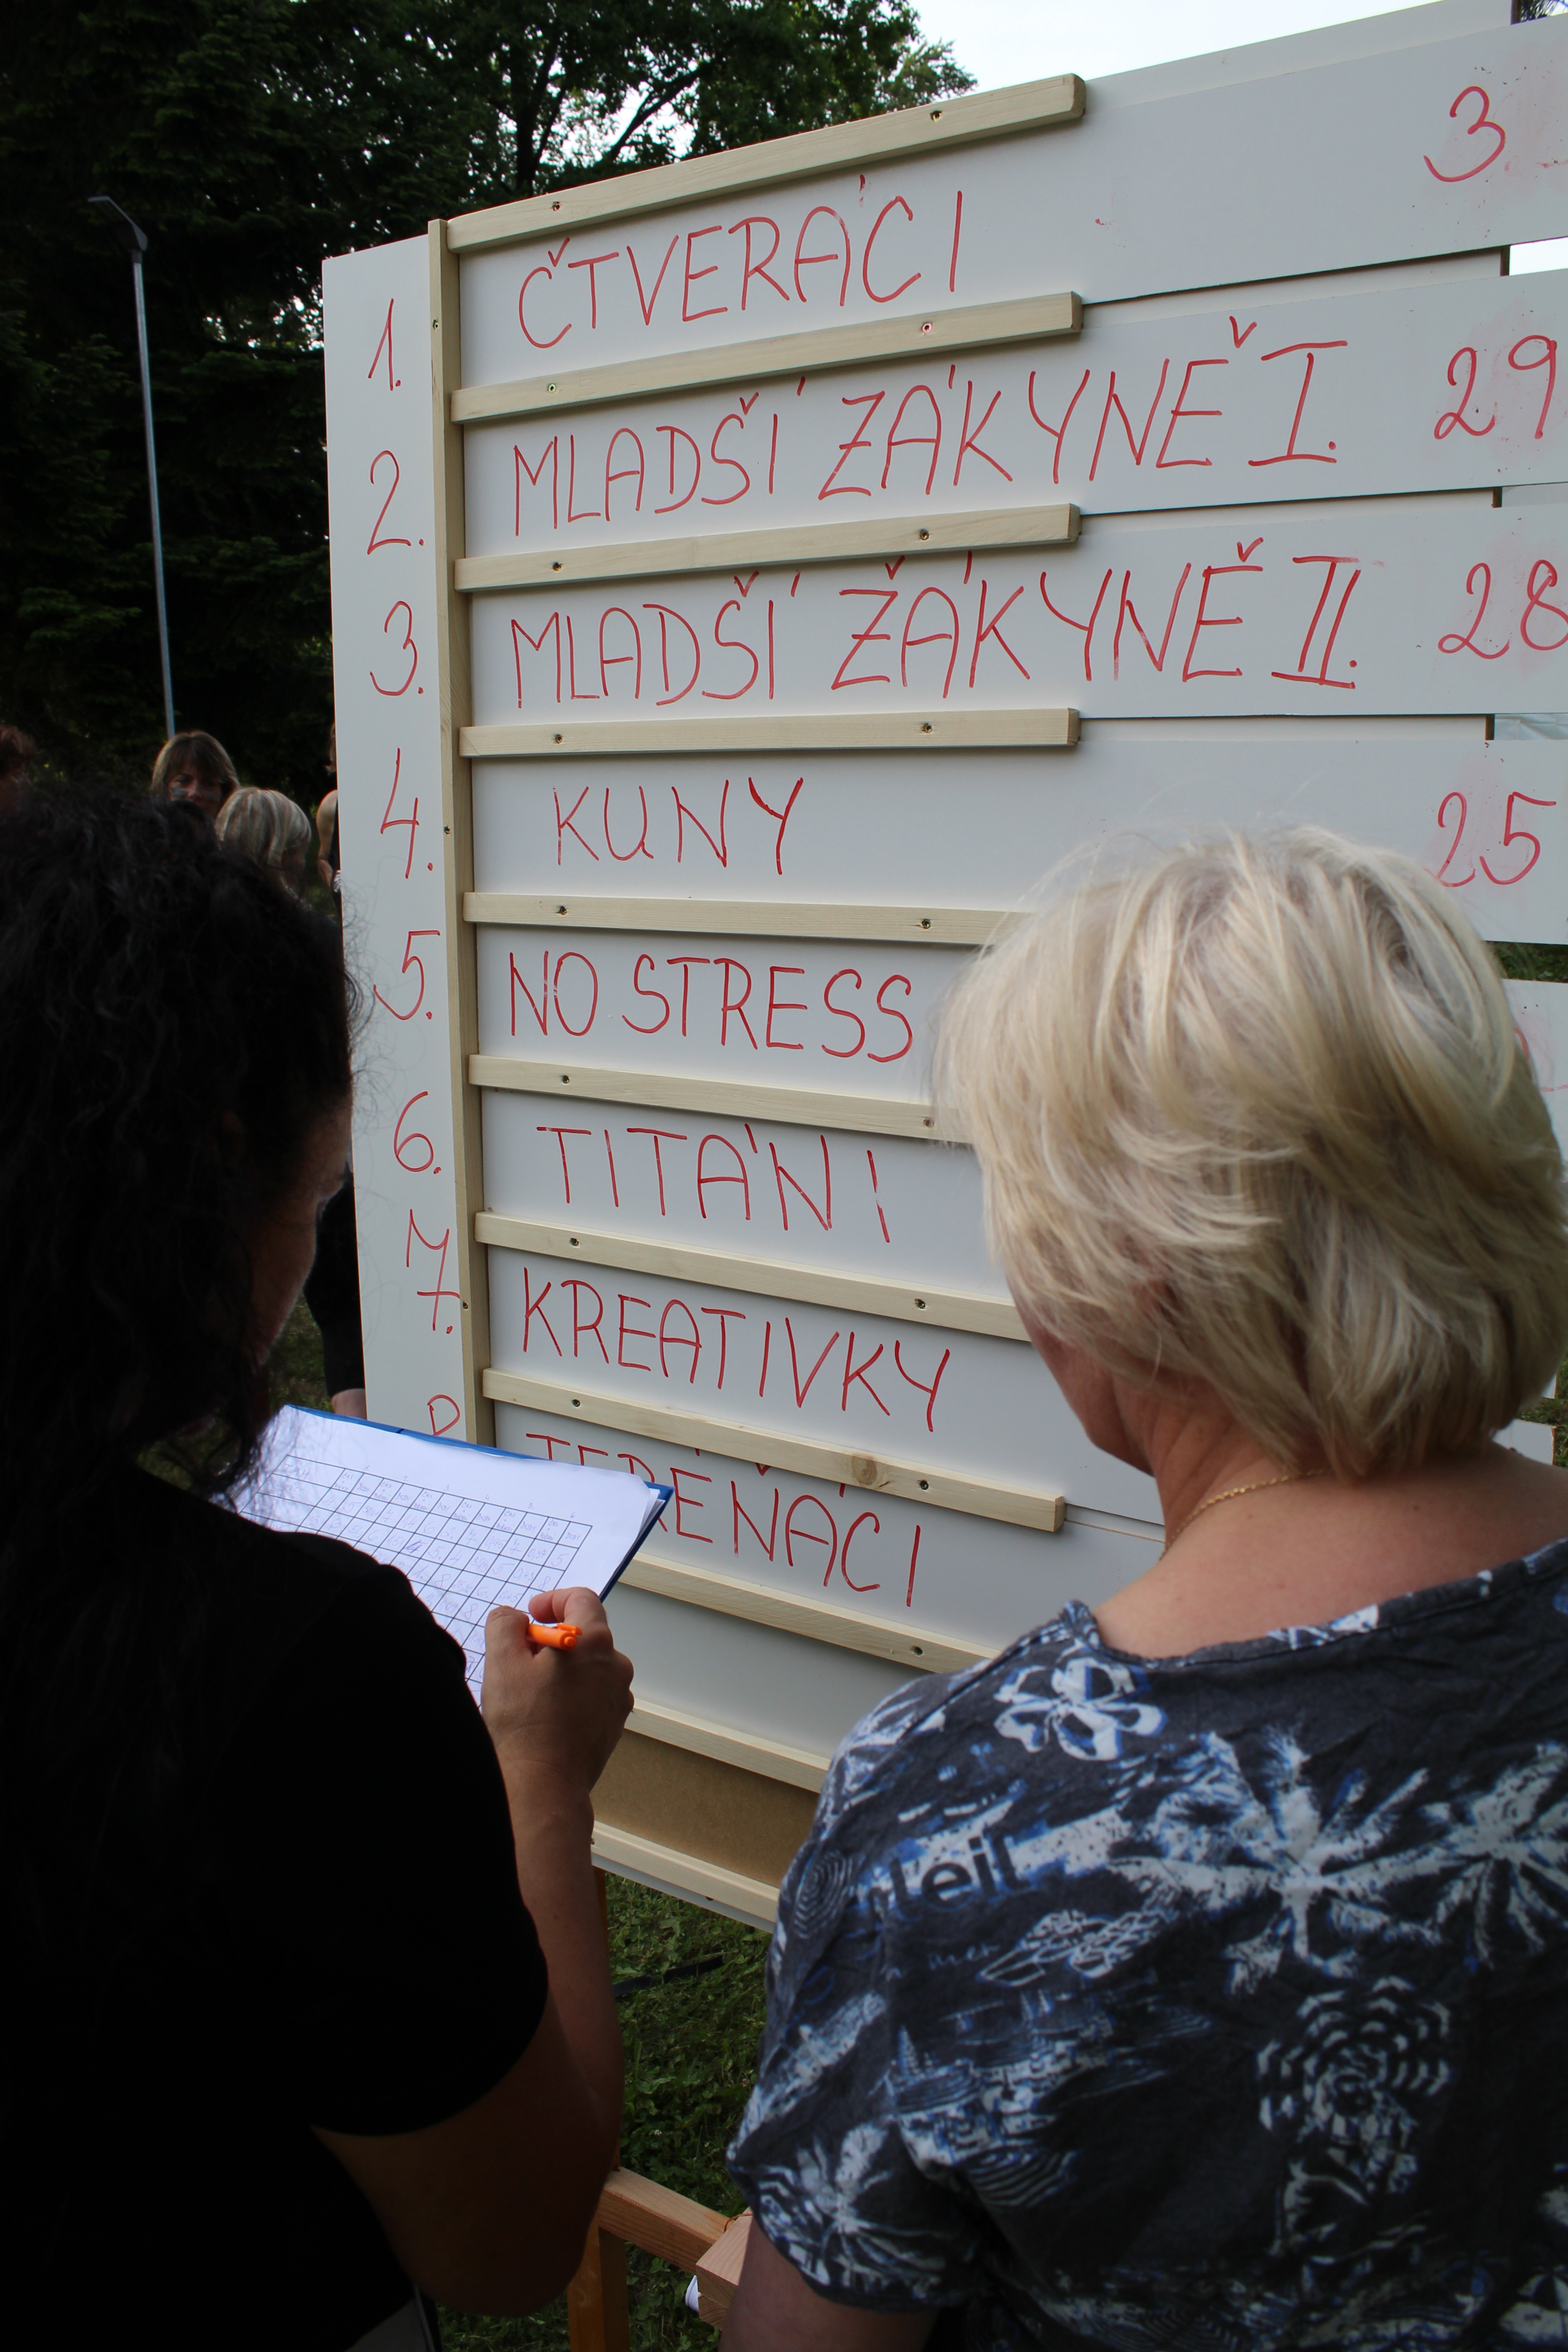 1. ČTVERÁCI 3
2. MLADŠÍ ŽÁKYNĚ I. 29
3. MLADŠÍ ŽÁKYNĚ II. 28
4. KUNY 25
5. NO STRESS
6. TITÁNI
7. KREATIVKY
TERÉŇÁCI
leil